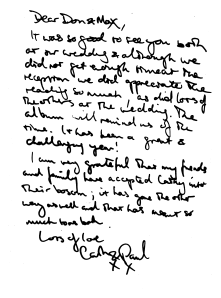 Dear Don & Max,
It was so good to see you both
at our wedding & although we
did not get enough time at the
reception we did appreciate the
reading so much, as did lots of
the others at the wedding. The
album will remind us of the
time. It has been a great &
challenging year!
I am very grateful that my friends
and family have accepted Cathy into
their bosom; it has gone the other
way as well and that has meant so
much to us both.
Lots of love
Cathy & Paul
xx